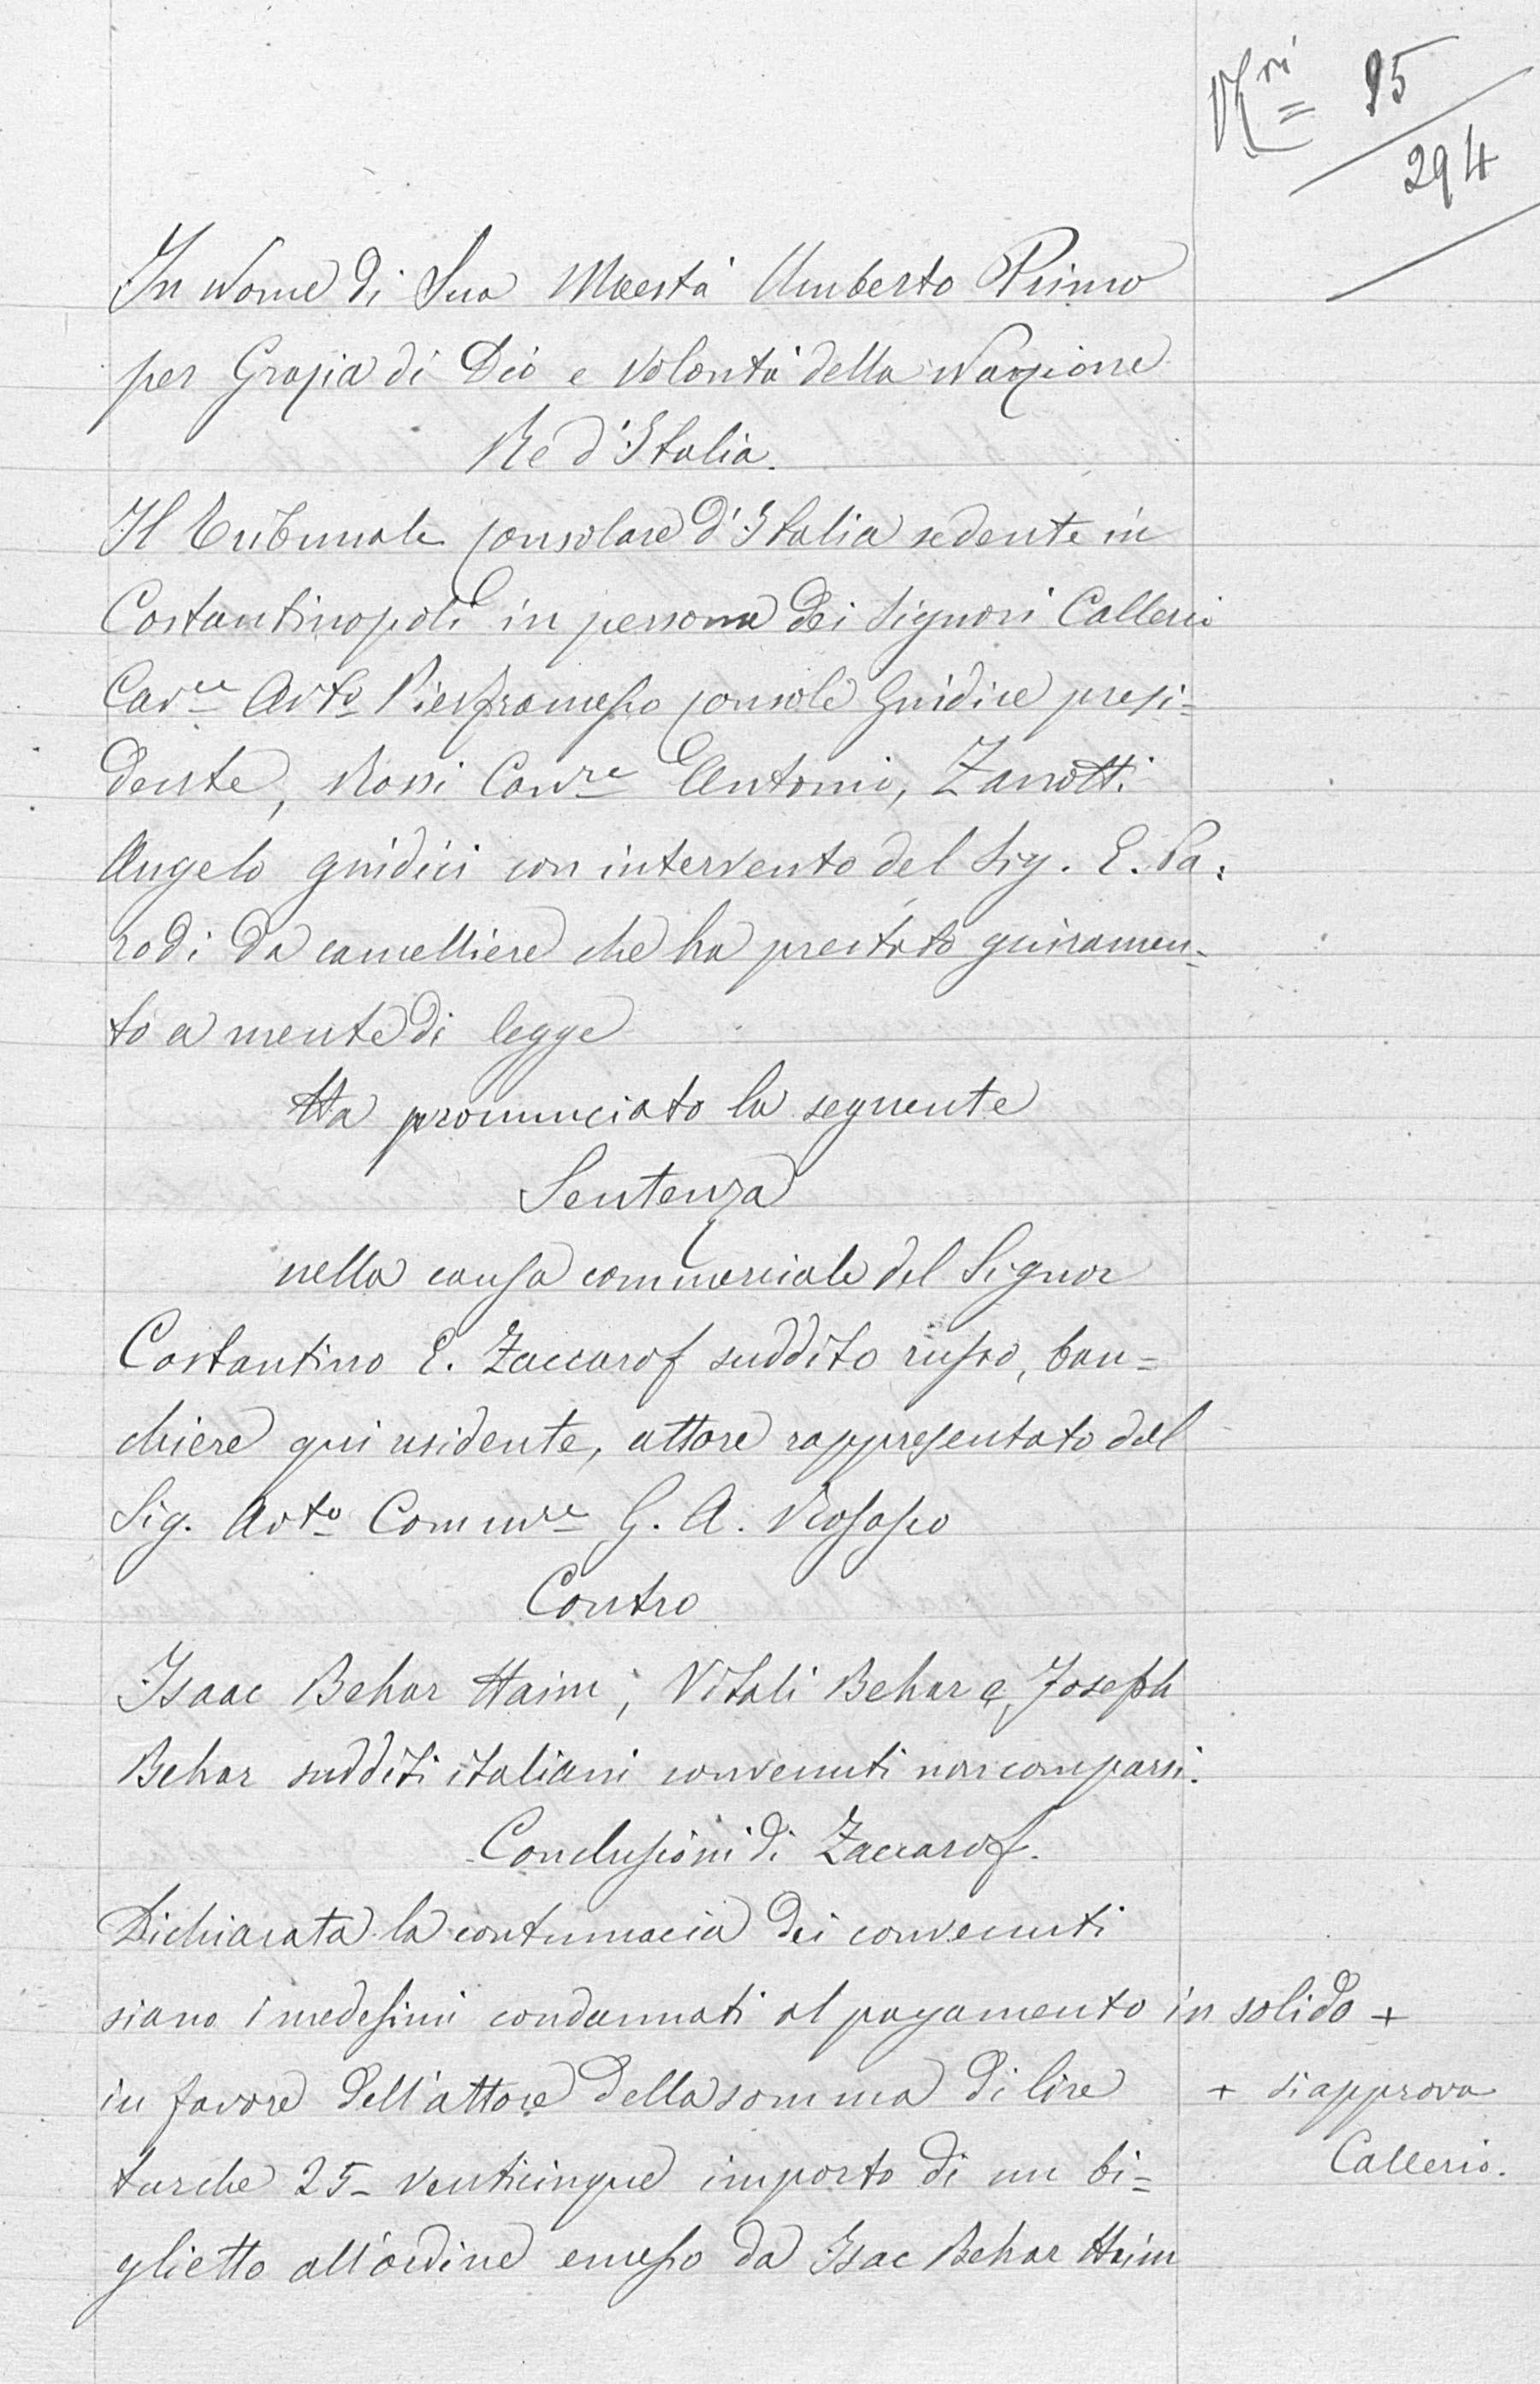 N.ri = 95
294
In Nome di Sua Maestà Umberto Primo
per Grazia di Dio e volontà della Nazione
Re d'Italia.
Il Tribunale consolare d'Italia sedente in
Costantinopoli in persona dei Signori Callerio
Cav.re Avv.to Pierfrancesco console Giudice presi=
dente, Rossi Cav.re Antonio, Zanotti
Angelo giudici con intervento del Sig. E. Pa:
rodi da cancelliere che ha prestato giuramen=
to a mente di legge
Ha pronunciato la seguente
Sentenza
nella causa commerciale del Signor
Costantino E. Zaccarof suddito russo, ban=
chiere qui residente, attore rappresentato dal
Sig. Avv.to Comm.re G. A. Rosasco
Contro
Isaac Behar Haim, Vitali Behar e Joseph
Behar sudditi italiani convenuti non comparsi.
Conclusioni di Zaccarof.
Dichiarata la contumacia dei convenuti
siano i medesimi condannati al pagamento in solido +
in favore dell'attore della somma di lire
+ si approva
turche 25- venticinque importo di un bi=
Callerio.
glietto all'ordine emesso da Isac Behar Haim